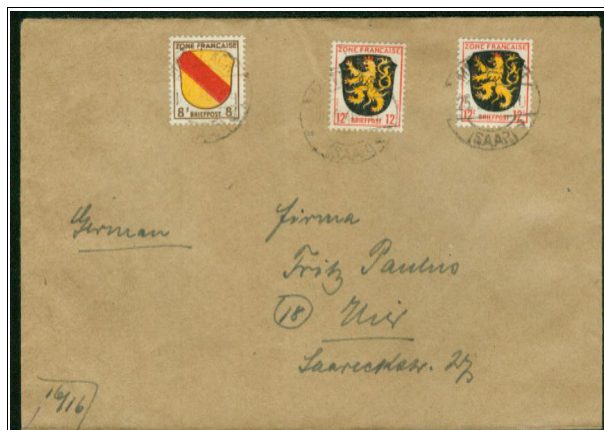 ZONE FRANÇAISE
8f BRIEFPOST 8f
ZONE FRANÇAISE
12f BRIEFPOST 12f
ZONE FRANÇAISE
12f BRIEFPOST 12f
(SAAR)
(SAAR)
German
Firma
Fritz Paulus
(18)
Saareckstr. 27
16/16